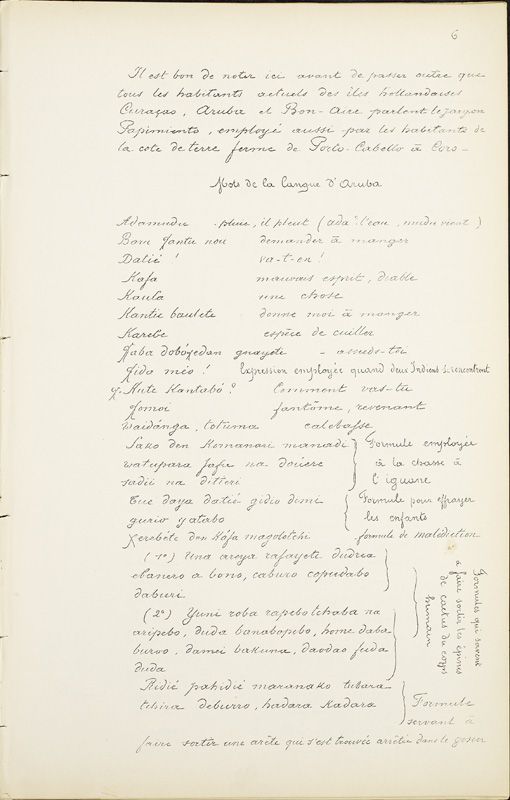 6
Il est bon de noter ici avant de passer outre que
tous les habitants actuels des îles hollandaises
Curaçao, Aruba et Bon-Aire parlent le jargon
Papimiento, employé aussi par les habitants de
la cote de terre ferme de Porto-Cabello à Coro -
Mots de la langue d'Aruba
Adamudu - pluie, il pleut (ada: l'eau, mudu vient)
Boru Jantu nou demander à manger
Datié ! va-t-en !
Kafa mauvais esprit, diable
Kaula une chose
Kantie baulete donne moi à manger
Karebe espèce de cuiller
Jaba dobojedan guayete - assieds-toi
Jida mio ! Expression employée quand deux Indiens se rencontrent
Aute Kantabo ? Comment vas-tu
Jomoi fantôme, revenant
Waidánga, totuma calebasse
Sako den Komanari manadi
watupara Jafu na douere
sadii na ditieri
Formule employée
à la chasse à
l'iguane
Cue daya datié gidio dimi
gurio yatabo
Formule pour effrayer
les enfants
Xerebéte den Kófa magolotchi formule de malédiction
(1º) Una areya rafayete dudrea
ebanero a bono, caburo copudabo
daburi.
(2º) Yuni roba rapebotchaba na
aripebo, duda banabopebo, home daba
burvo, damei bakuna, daodao fuda
duda
Formules qui servent
à faire sortir les épines
de cactus du corps
humain
Ridié pahidié maranako tubara
tchira deburro, hadara Kadara
Formule
servant à
faire sortir une arête qui s'est trouvée arrêtée dans le gosier